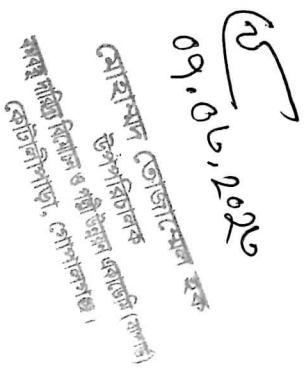 ০৭.০৮.২০২৩
মোহাম্মদ তোফাজ্জেল হক
উপপরিচালক
দারিদ্র্য বিমোচন ও পল্লী উন্নয়ন একাডেমি (বাপার্ড)
কোটালীপাড়া, গোপালগঞ্জ।